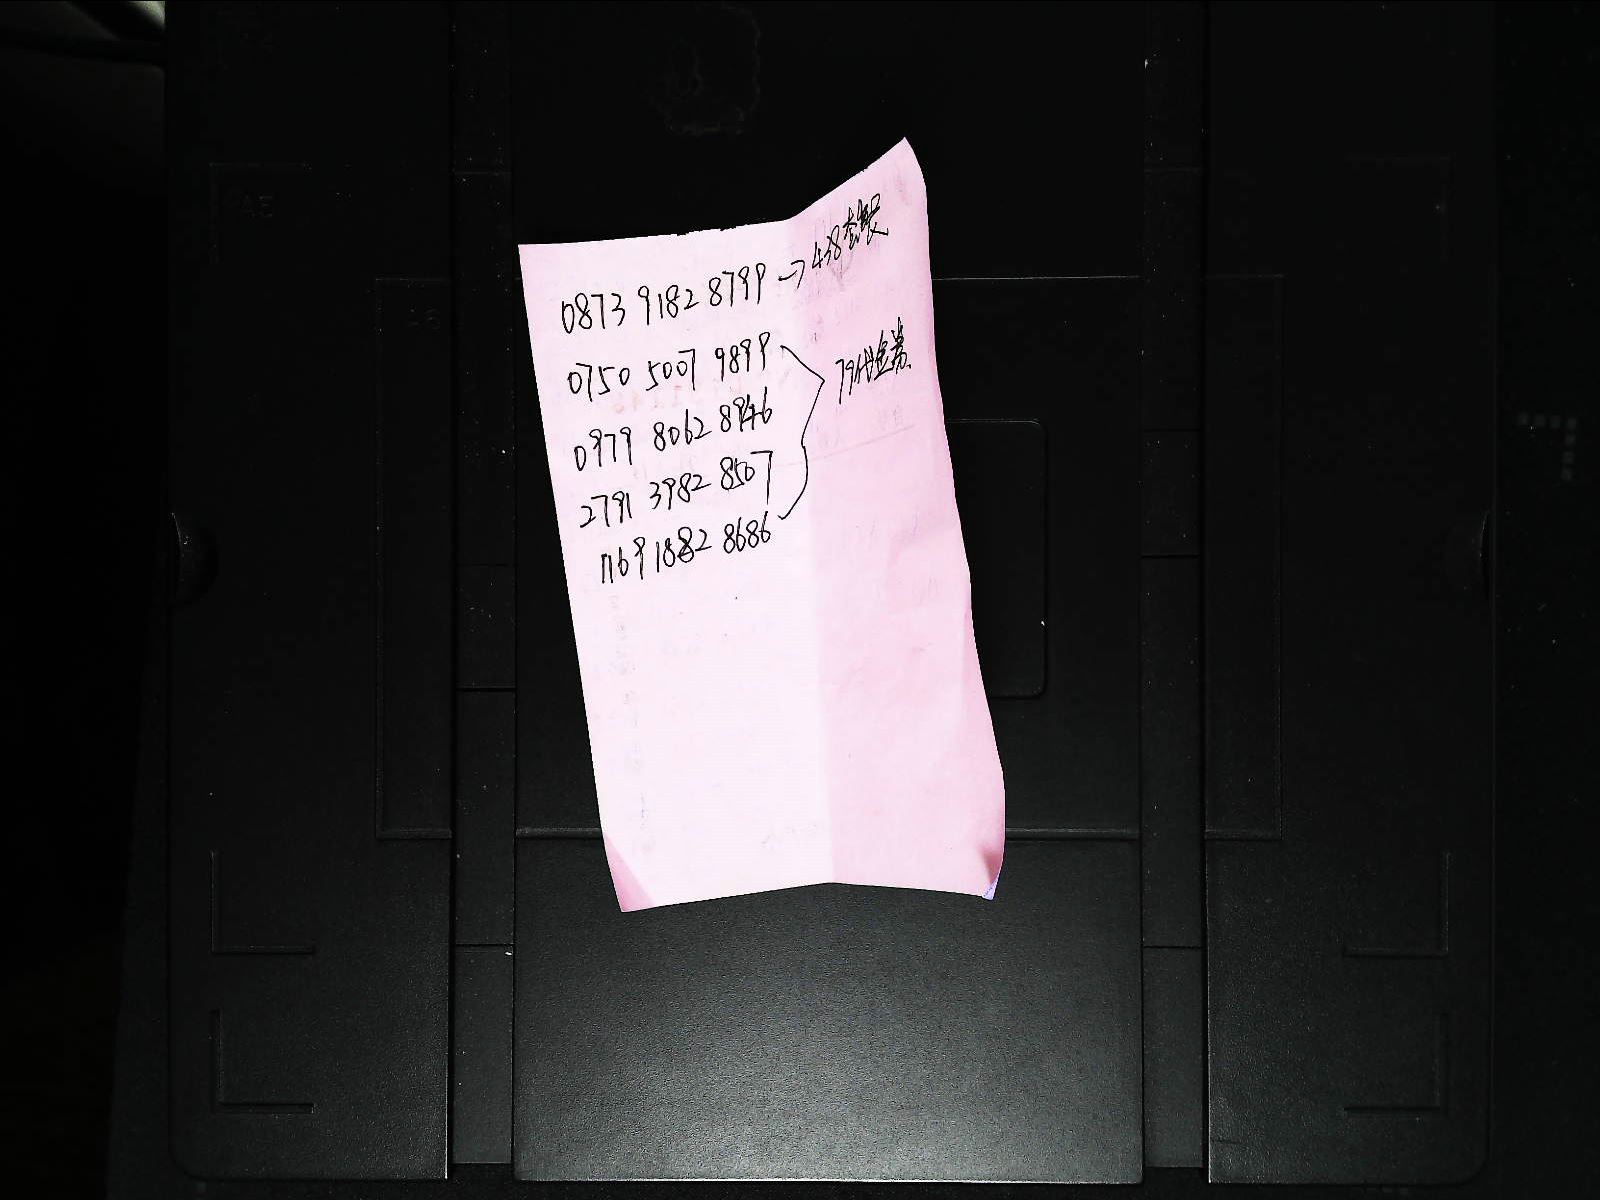 0873 9182 8799 → 438套餐
0750 5007 9899
79代金券
0979 8062 8946
2791 3982 8507
1169 1882 8686